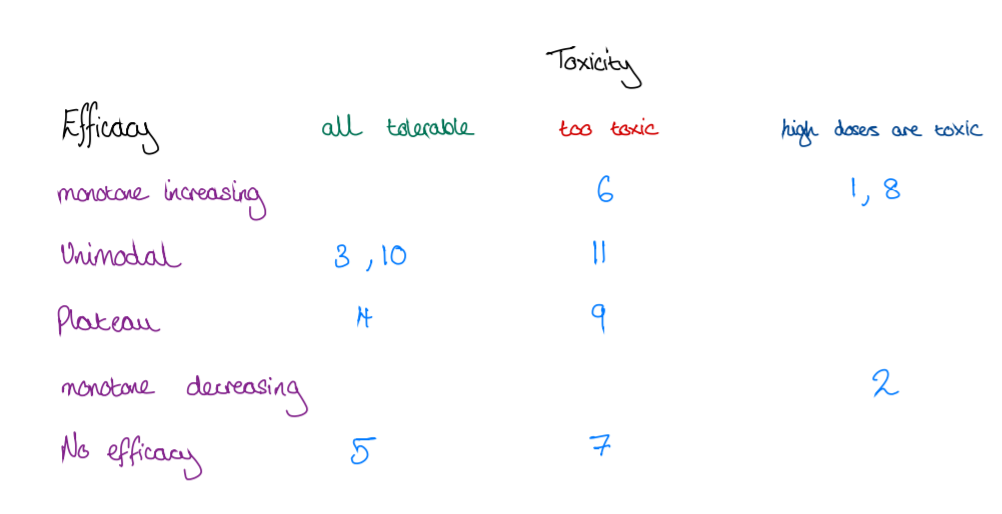 Toxicity
Efficacy all tolerable too toxic high doses are toxic
monotone increasing 6 1, 8
Unimodal 3, 10 11
Plateau 4 9
monotone decreasing 2
No efficacy 5 7